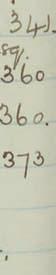 341.
sq.
360
360.
373